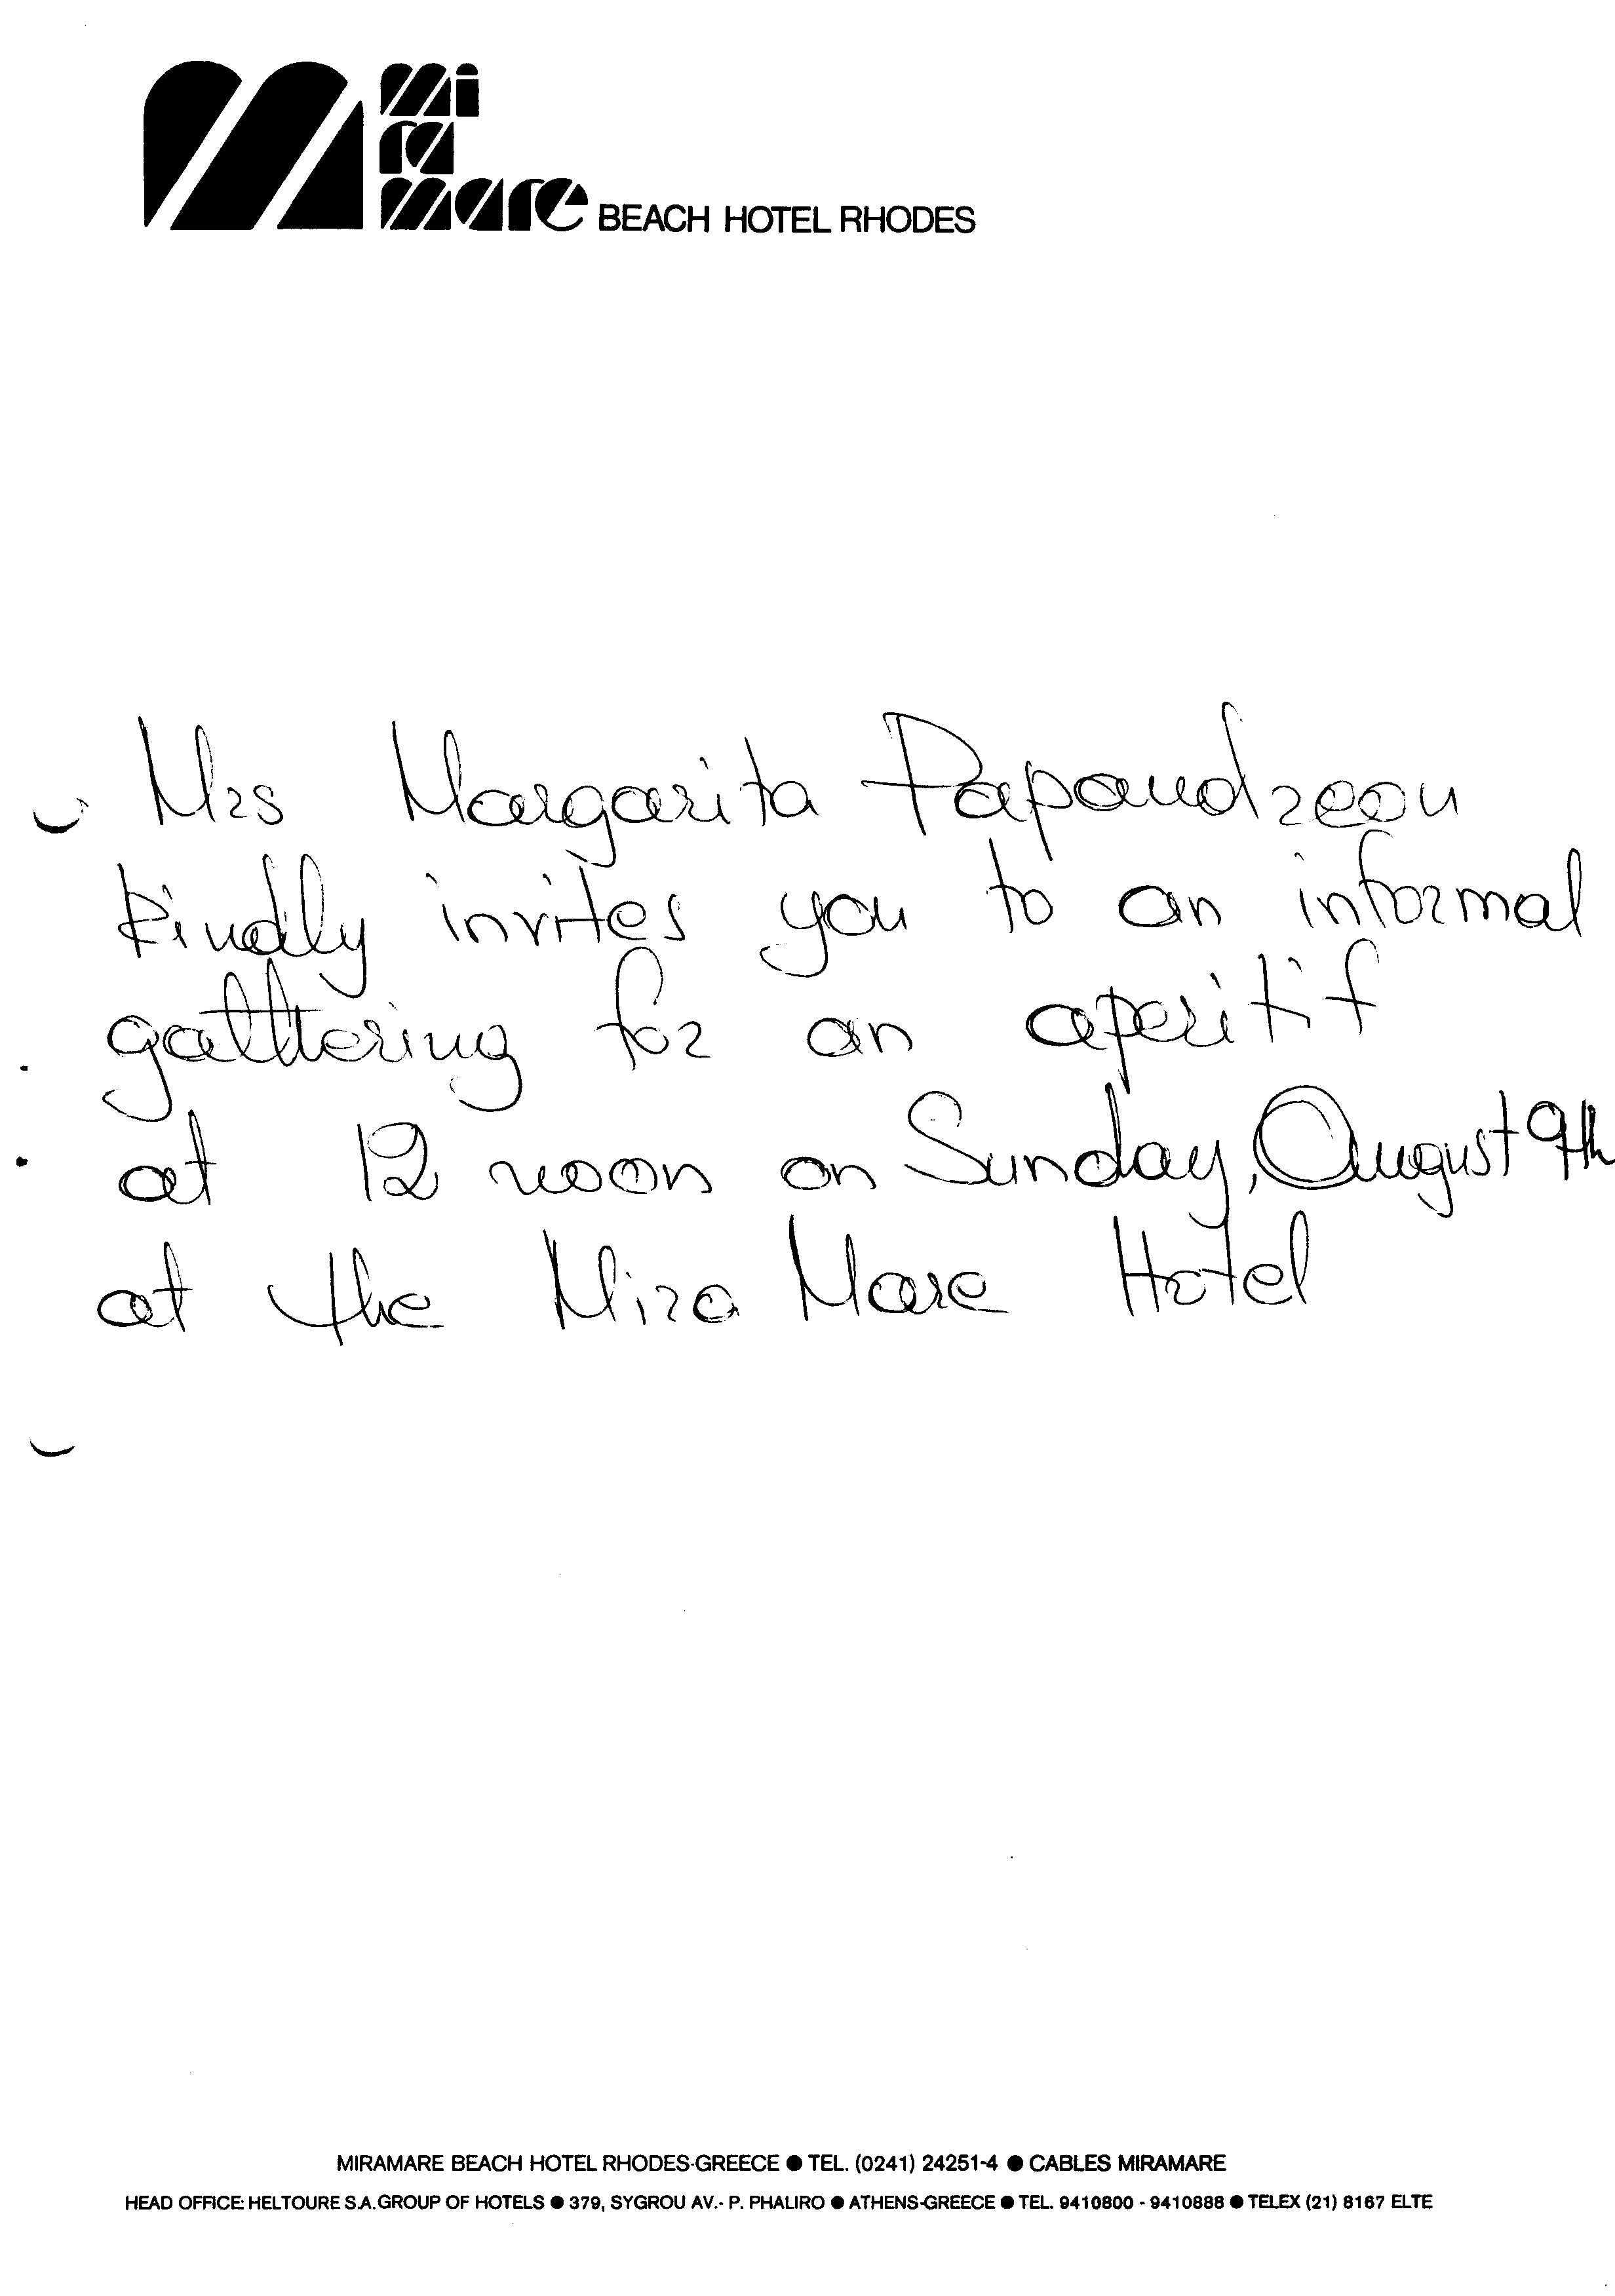 Mi
ra
mare BEACH HOTEL RHODES
Mrs Margarita Papandreou
kindly invites you to an informal
gatthering for an aperitif
at 12 noon on Sunday, August 9th
at the Mira Mare Hotel
MIRAMARE BEACH HOTEL RHODES-GREECE ● TEL. (0241) 24251-4 ● CABLES MIRAMARE
HEAD OFFICE: HELTOURE S.A. GROUP OF HOTELS ● 379, SYGROU AV.- P. PHALIRO ● ATHENS-GREECE ● TEL. 9410800 - 9410888 ● TELEX (21) 8167 ELTE